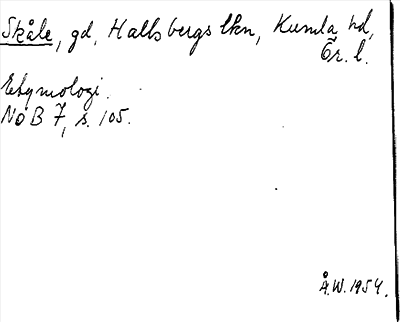 Skåle, gd, Hallsbergs lkn, Kumla hd,
Ör. l.
Etymologi.
NoB 7, s. 105.
Å.W. 1954.